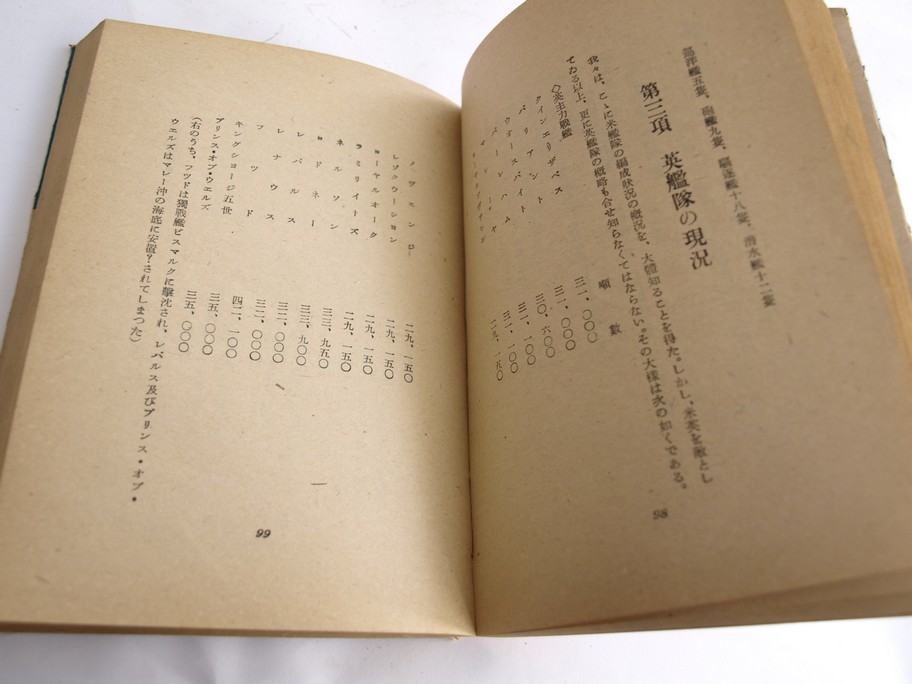 巡洋艦五隻、砲艦九隻、驅逐艦十八隻、潛水艦十二隻
第三項　英艦隊の現況
我々は、こゝに米艦隊の編成狀況の概況を、大體知ることを得た。しかし、米英を敵とし
てゐる以上、更に英艦隊の概略も合せ知らなくてはならない。その大樣は次の如くである。
◇英主力戰艦　噸數
クインエリザベス　三一、〇〇〇
バリアント　三一、〇〇〇
ウオースパイト　三〇、六〇〇
バーハム　三一、一〇〇
マレーヤ　三一、一〇〇
二九、一五〇
98
ノツエンジ　二九、一五〇
レゾルウーション　二九、一五〇
ローヤルオーク　二九、一五〇
ラミリイーズ　二九、一五〇
ネルソン　三三、九五〇
ロドネー　三三、九〇〇
レパルス　三二、〇〇〇
レナウス　三二、〇〇〇
フツド　四二、一〇〇
キングジョージ五世　三五、〇〇〇
プリンス・オブ・ウエルズ　三五、〇〇〇
(右のうち、フツドは獨戰艦ビスマルクに擊沈され、レパルス及びプリンス・オブ・
ウエルズはマレー沖の海底に安置？されてしまつた)
99